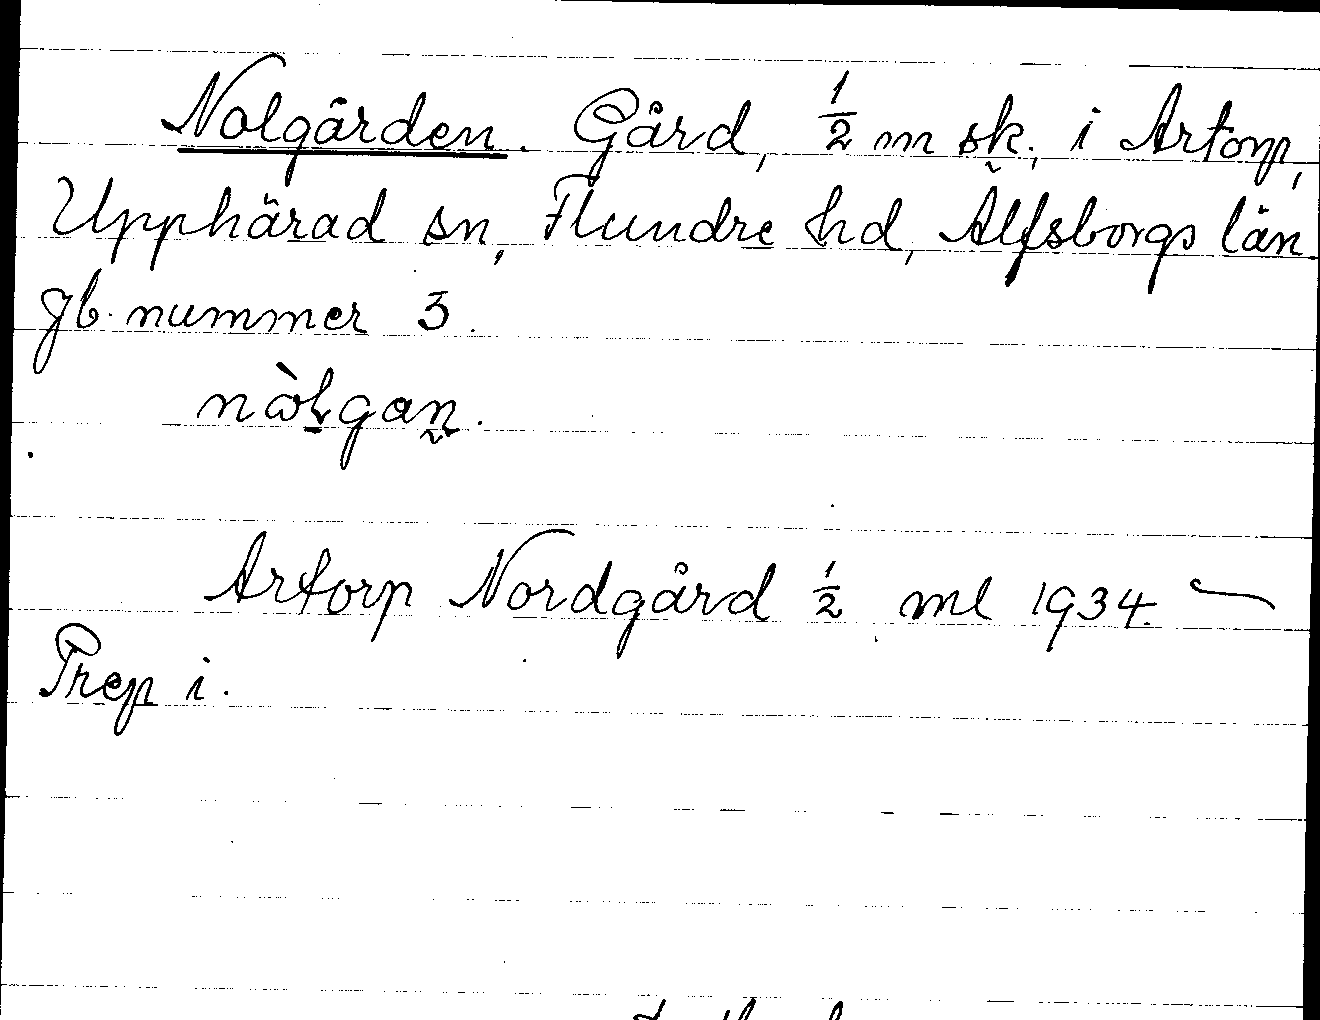 Nolgården. Gård, 1/2 m sk, i Artorp,
Upphärad sn, Flundre hd, Älfsborgs län.
jb. nummer 3.
Artorp Nordgård 1/2 ml 1934.
Prep i.